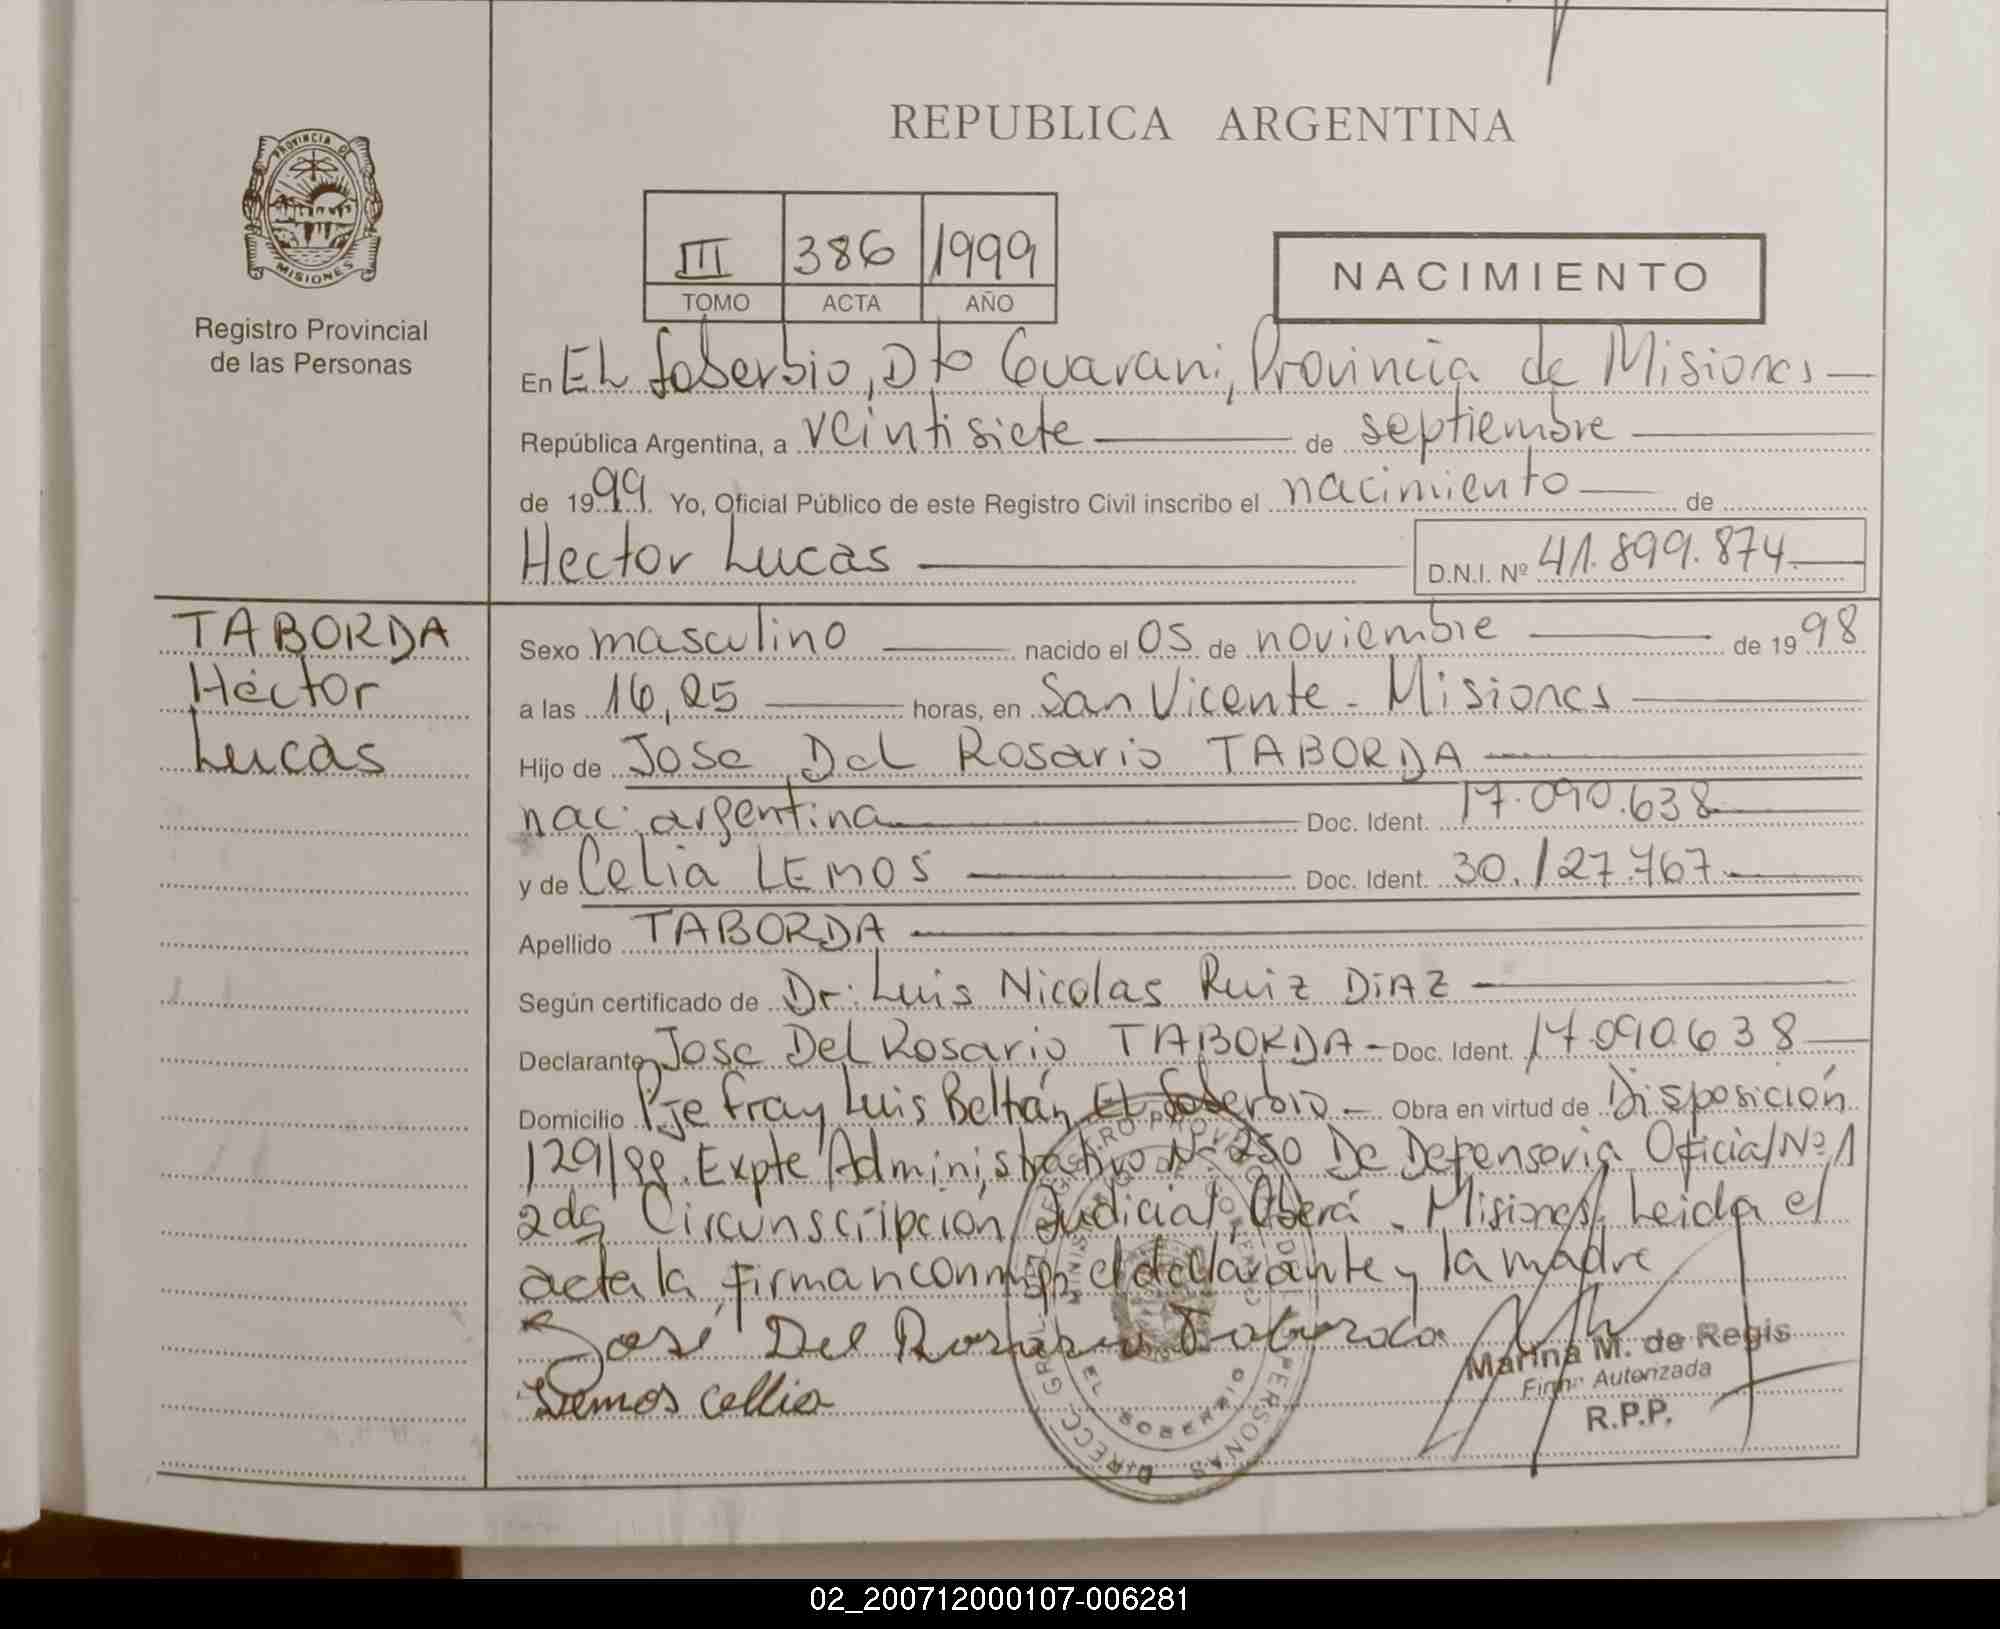 REPUBLICA ARGENTINA
PROVINCIA DE
MISIONES
Registro Provincial
de las Personas
III 386 1999
TOMO ACTA AÑO
NACIMIENTO
En EL Soberbio, Dto Guarani, Provincia de Misiones
República Argentina, a veintisiete de septiembre
de 1999 Yo, Oficial Público de este Registro Civil inscribo el nacimiento de
Hector Lucas D.N.I. Nº 41.899.874
TABORDA
Héctor
Lucas
Sexo masculino nacido el 05 de noviembre de 1998
a las 16,25 horas, en San Vicente - Misiones
Hijo de Jose Del Rosario TABORDA
nac. argentina Doc. Ident. 17.090.638
y de Celia LEMOS Doc. Ident. 30.127.767
Apellido TABORDA
Según certificado de Dr. Luis Nicolas Ruiz DiAZ
Declarante Jose Del Rosario TABORDA - Doc. Ident. 17.090.638
Domicilio Pje Fray Luis Beltrán, El Soberbio - Obra en virtud de Disposición
129/99. Expte Administrativo Nº 250 De Defensoria Oficial Nº 1
2da Circunscripción Judicial, Oberá - Misiones. Leida el
acta la firman conmigo el declarante y la madre
José Del Rosario Taborda
Lemos Cellia
Marina M. de Regis
Firma Autorizada
R.P.P.
DIRECC. GRAL. REGISTRO PROV. DE PERSONAS
EL SOBERBIO
02_200712000107-006281